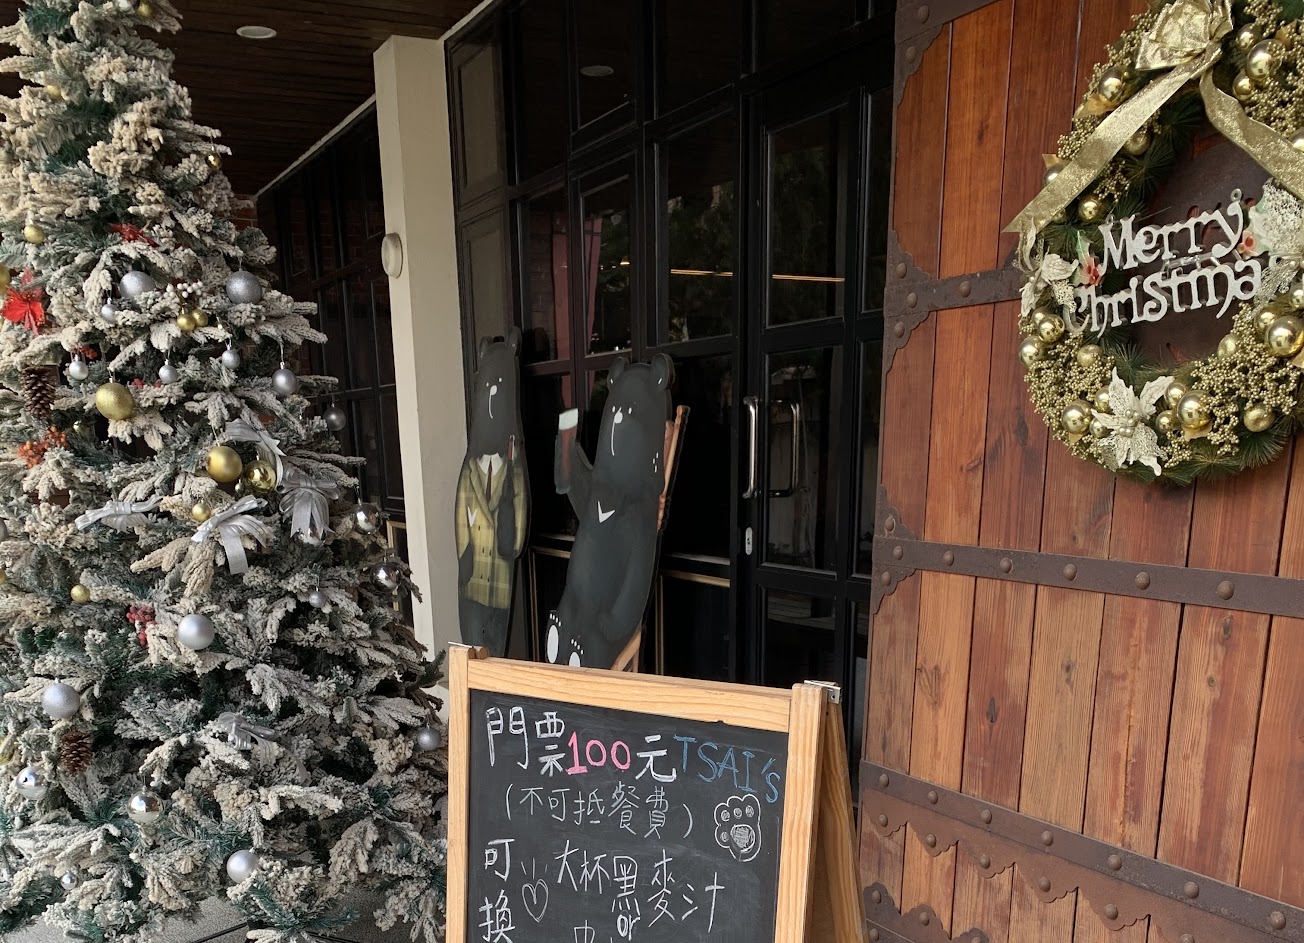 Merry
Christma
門票100元TSAI's
(不可抵餐費)
可換
大杯黑麥汁
or